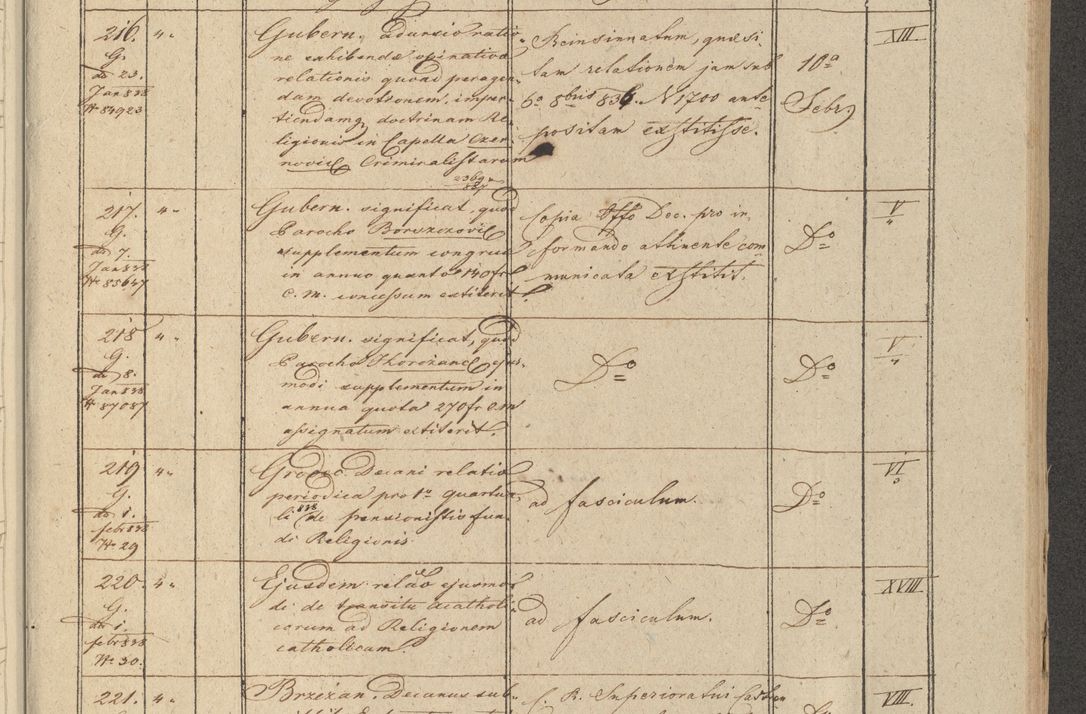 216.
G.
do 23.
Jan 838
N 84923
4"
Gubern. ad
ne exhibendæ opinativæ
relationis quoad peragen-
dam devotionem, imper-
tiendamq doctrinam Re-
ligionis in Capella Czer-
novic Criminalistarum
2369
837
Reinsinuatum, quæsi-
tam relationem jam sub
6a 8bris 836. N 1700 ante
positam exstitisse.
10a
Febr
XIII
217.
G.
do 7.
Jan 838
N 85647
4"
Gubern. significat, quod
Parocho
supplementum congruæ
in annuo quanto 140 fr
C. M. concessum extiterit.
Copia Offo Dec. pro in-
formando attinente com
municata exstitit.
Do
V
218
G.
do 8.
Jan 838
N 87087
4"
Gubern. significat, quod
Parocho ejus-
modi supplementum in
annua quota 270 fr C.M
assignatum extiterit.
Do
Do
V
219
G.
do 1.
febr 838
N 29
4"
Grodec. Decani relatio
periodica pro 1o quartua-
li 838 de pensionistis fun-
di Religionis.
ad fasciculum.
Do
VI
220.
G.
do 1.
febr 838
N 30.
4"
Ejusdem relao ejusmo-
di de transitu acatholi-
corum ad Religionem
catholicam.
ad fasciculum.
Do
XVIII
221.
4"
Brzezan. Decanus sub-
C. R. Superioratui
VIII.